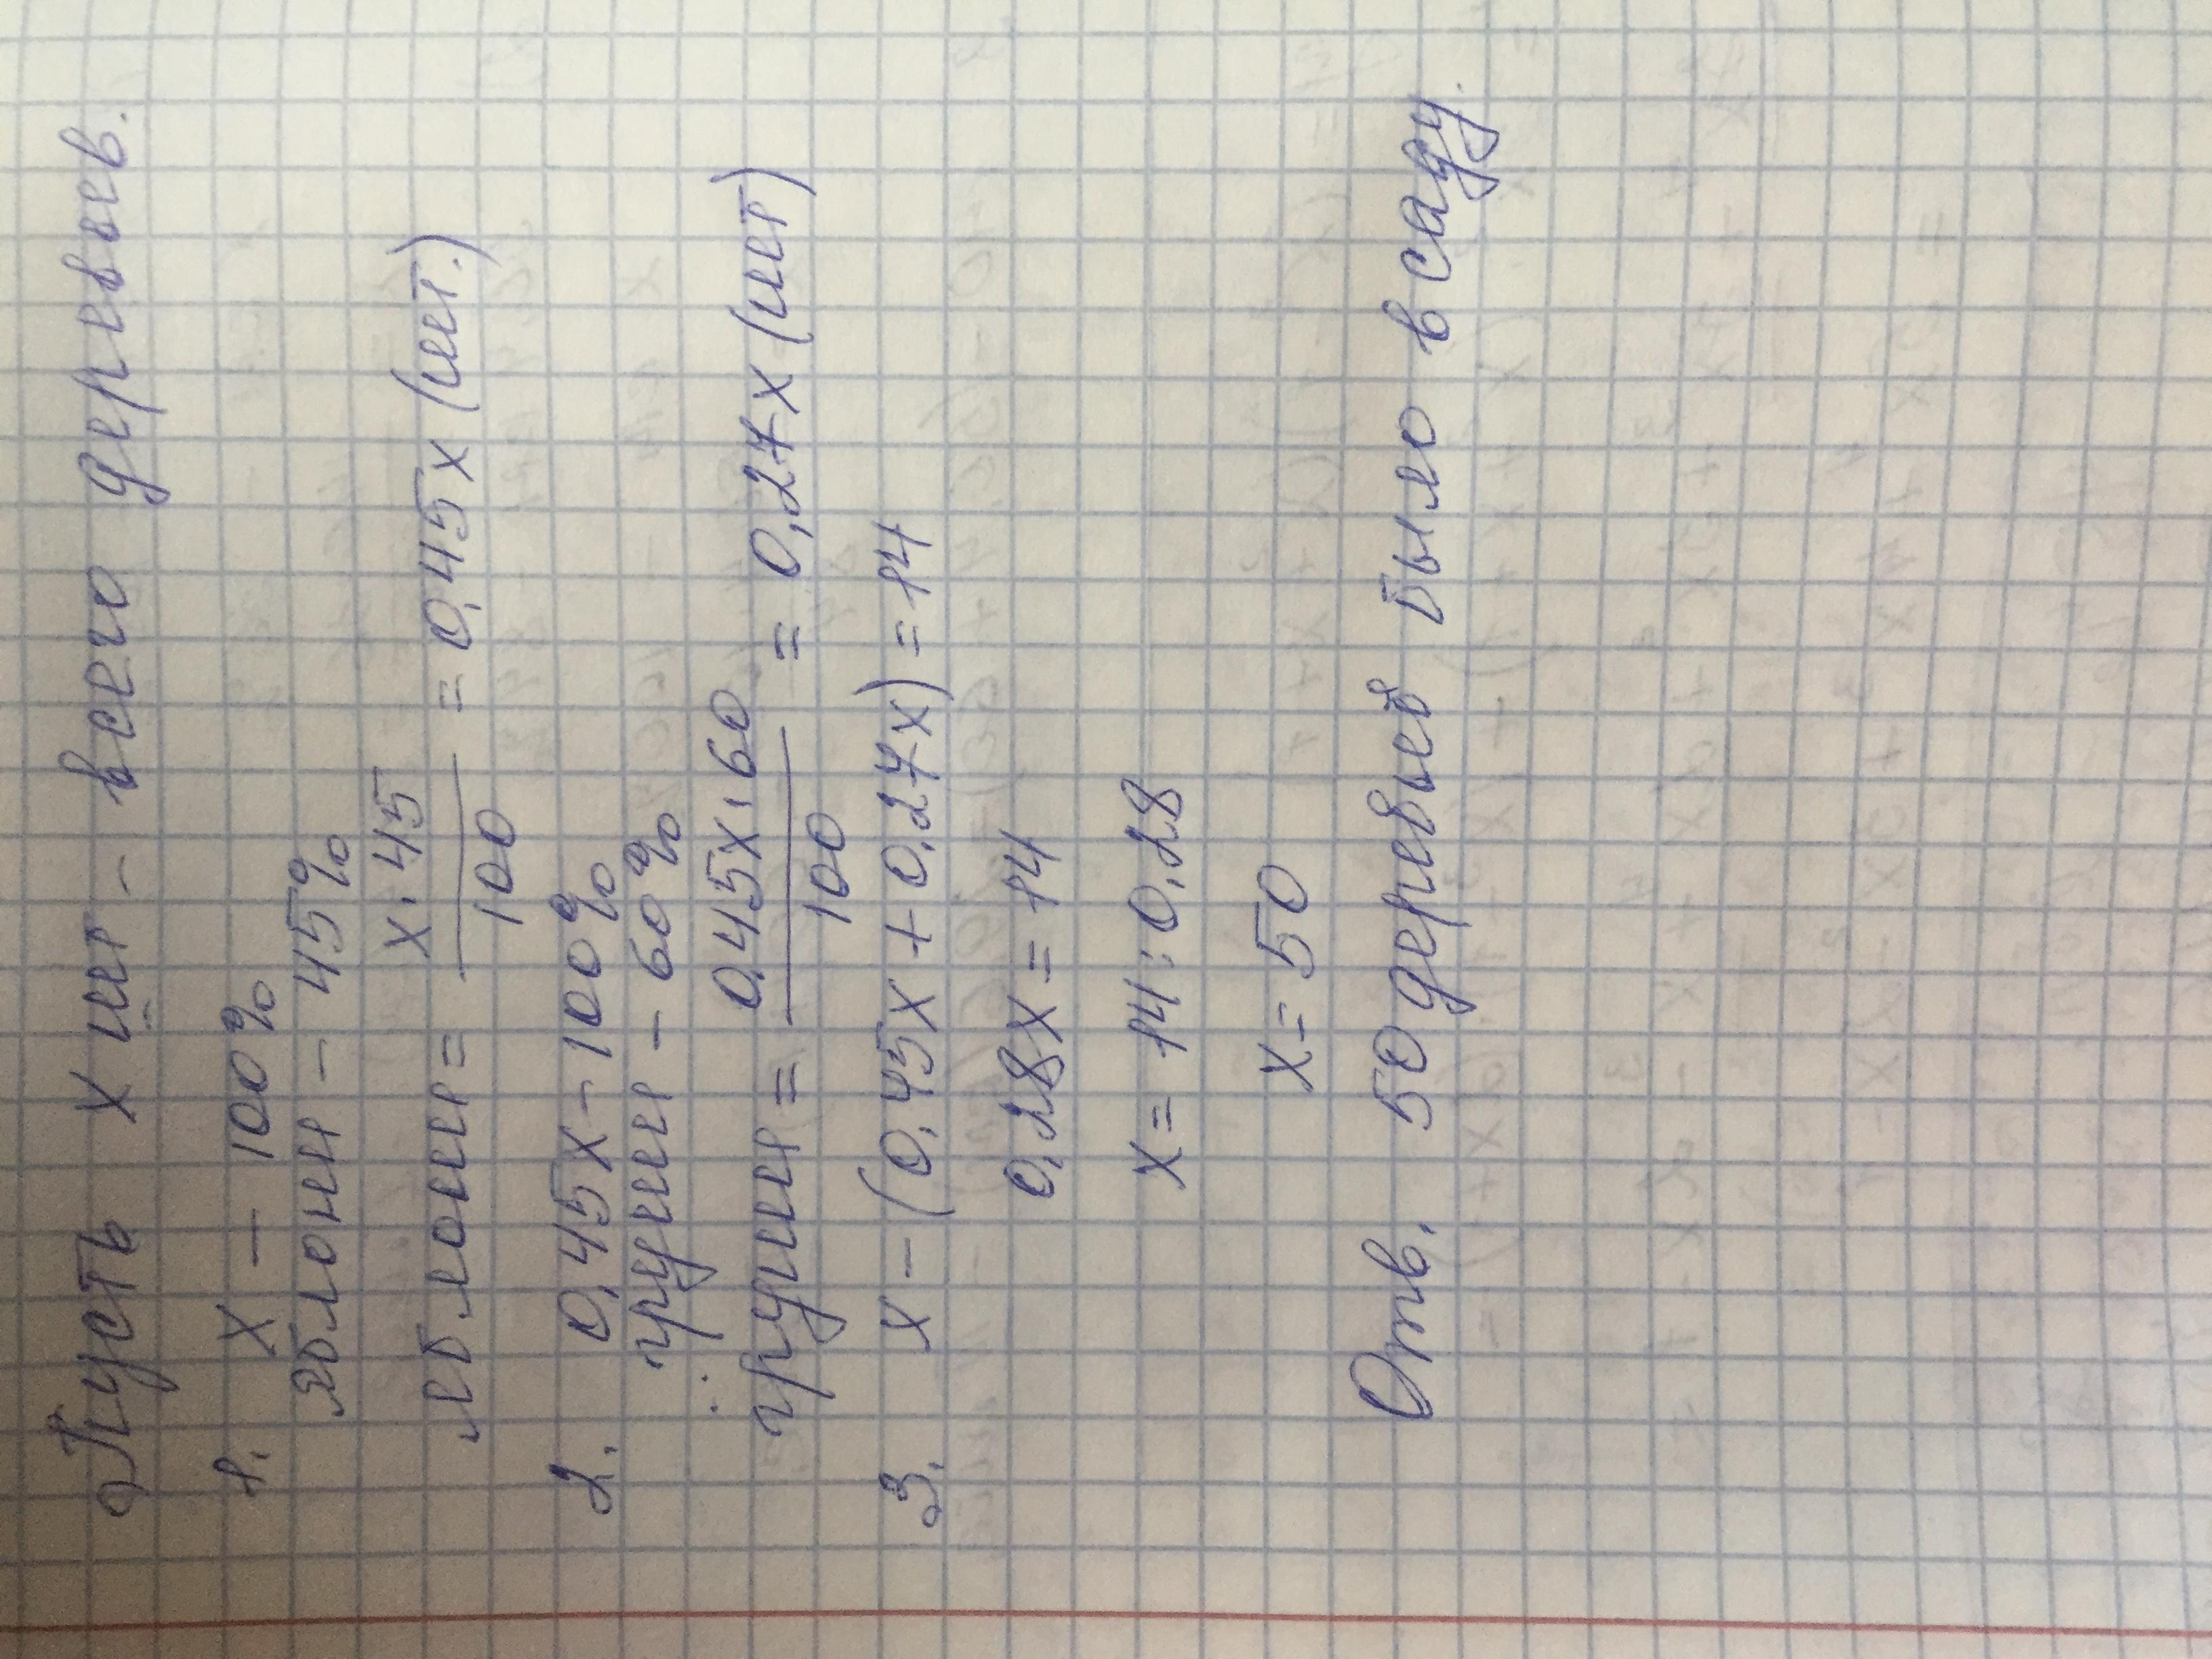 Пусть x шт - всего деревьев.
1. x - 100%
яблони - 45%
яблони = x · 45 / 100 = 0,45x (шт.)
2. 0,45x - 100%
груши - 60%
груши = 0,45x · 60 / 100 = 0,27x (шт)
3. x - (0,45x + 0,27x) = 14
0,28x = 14
x = 14 : 0,28
x = 50
Отв. 50 деревьев было в саду.